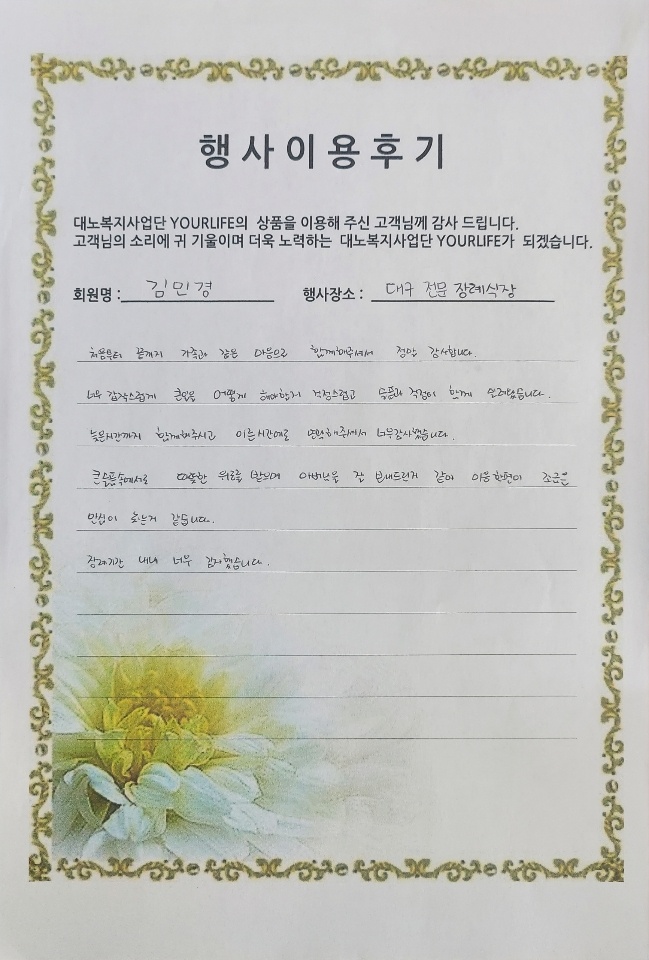 행사이용후기
대노복지사업단 YOURLIFE의 상품을 이용해 주신 고객님께 감사 드립니다.
고객님의 소리에 귀 기울이며 더욱 노력하는 대노복지사업단 YOURLIFE가 되겠습니다.
회원명 : 김민경 행사장소 : 대구 전문 장례식장
처음부터 끝까지 가족과 같은 마음으로 함께해주셔서 정말 감사합니다.
너무 갑작스럽게 큰일을 어떻게 해야할지 걱정스럽고 슬픔과 걱정이 함께 몰려왔습니다.
늦은시간까지 함께해주시고 이른시간에도 연락해주셔서 너무감사했습니다.
큰슬픔속에서도 따뜻한 위로를 받으며 아버님을 잘 보내드린거 같아 마음한편이 조금은
안심이 되는거 같습니다.
장례기간 내내 너무 감사했습니다.